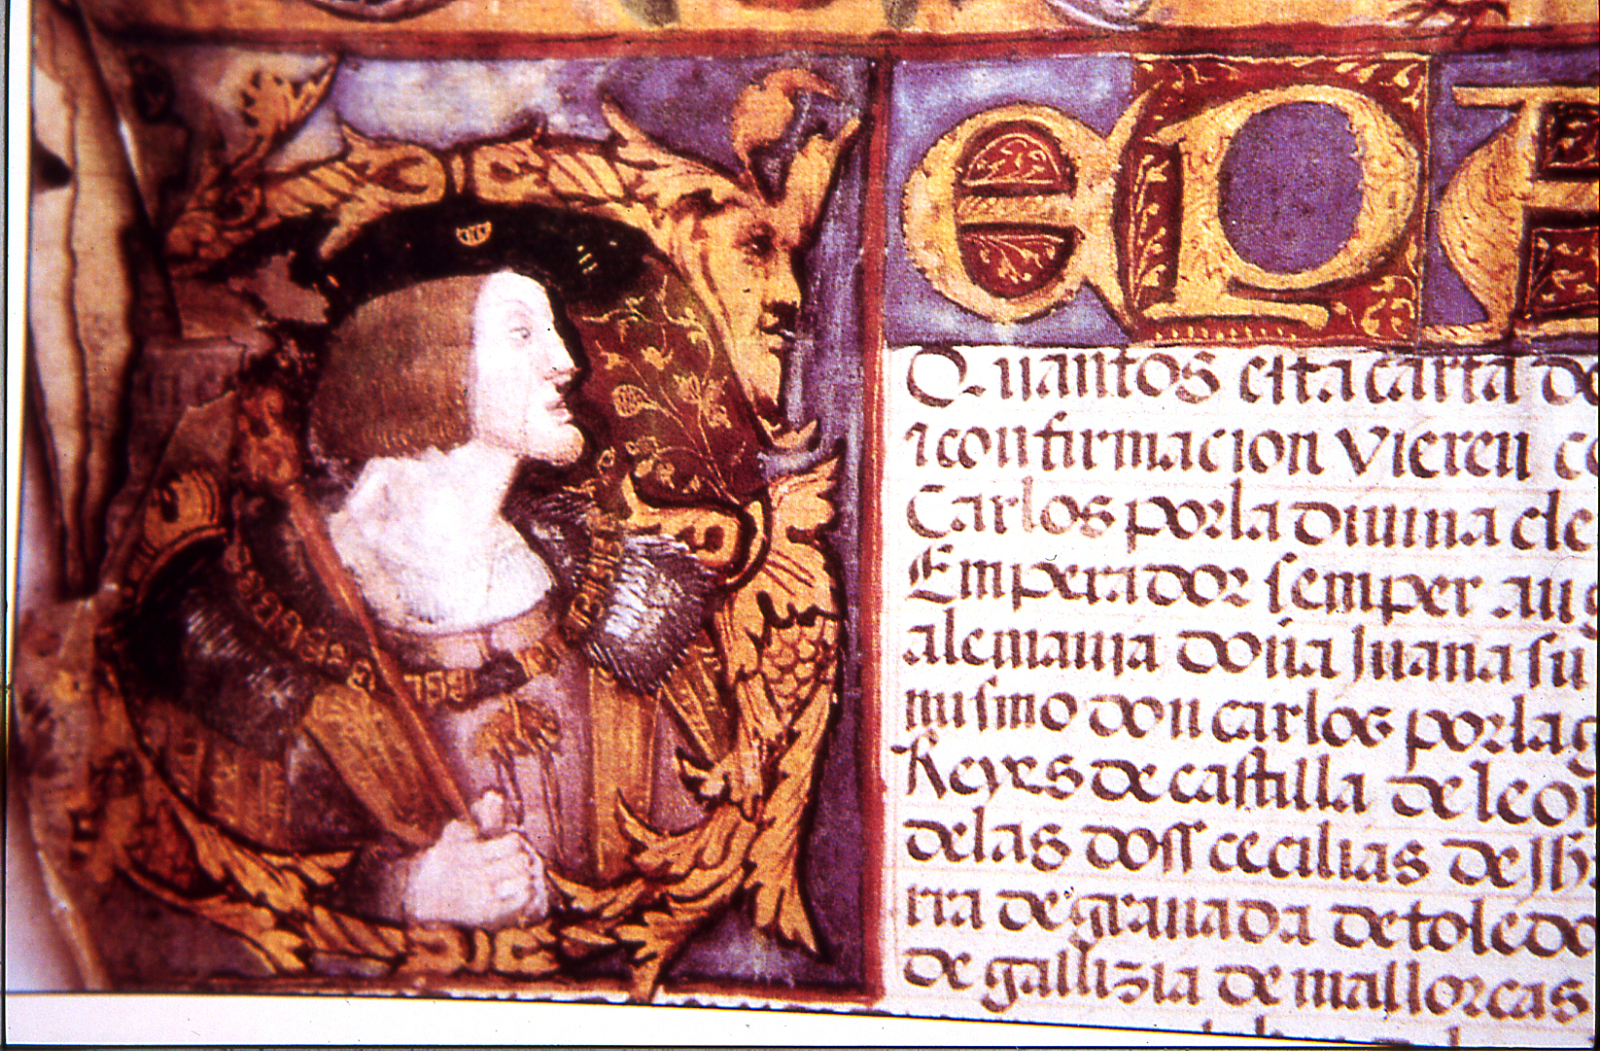 EPA
Quantos esta carta de
i confirmacion vieren co
Carlos por la divina cle
Emperador semper aug
alemania doña Juana su
mismo don carlos por la g
Reyes de castilla de leon
de las doss cecilias de Jh
rra de granada de toledo
de gallizia de mallorcas